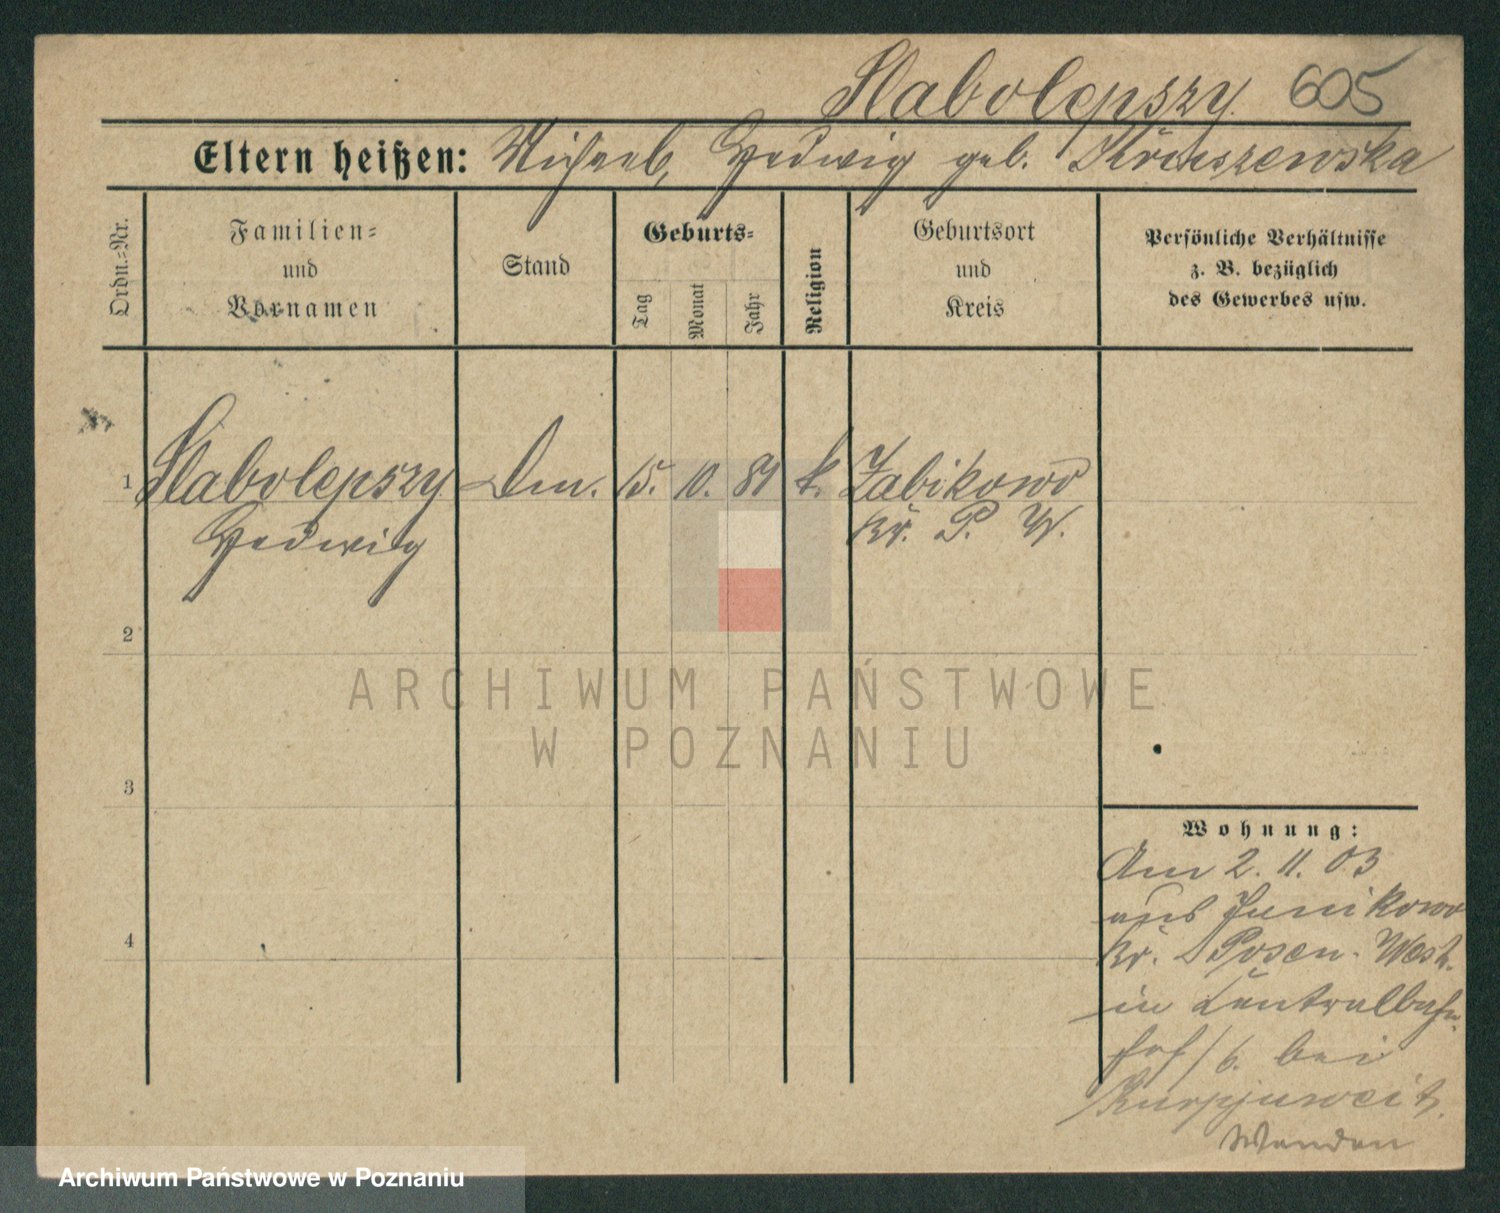 Slabolepszy. 605
Eltern heißen: Michael, Hedwig geb.
Ordn.-Nr.
Familien-
und
Vornamen
Stand
Geburts-
Tag
Monat
Jahr
Religion
Geburtsort
und
Kreis
Persönliche Verhältnisse
z. B. bezüglich
des Gewerbes usw.
1 Slabolepszy Dm. 15. 10. k. Zabikowo
Hedwig Kr. P. W.
2
3
4
ARCHIWUM PAŃSTWOWE
W POZNANIU
Wohnung:
Am 2. 11. 03
aus Junikowo
Kr. Posen-West.
in Centralbahn-
hof/6. bei
Archiwum Państwowe w Poznaniu